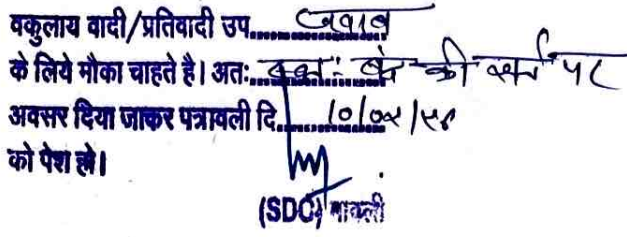 वकुलाय वादी/प्रतिवादी उप..... जवाब
के लिये मौका चाहते है। अतः..... बंद की शर्त पर
अवसर दिया जाकर पत्रावली दि..... 10/02/
को पेश हो।
(SDO) मावली